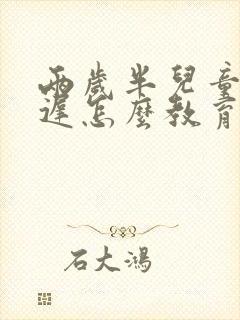 兩歲半兒童
遲怎麼教育
石大鴻